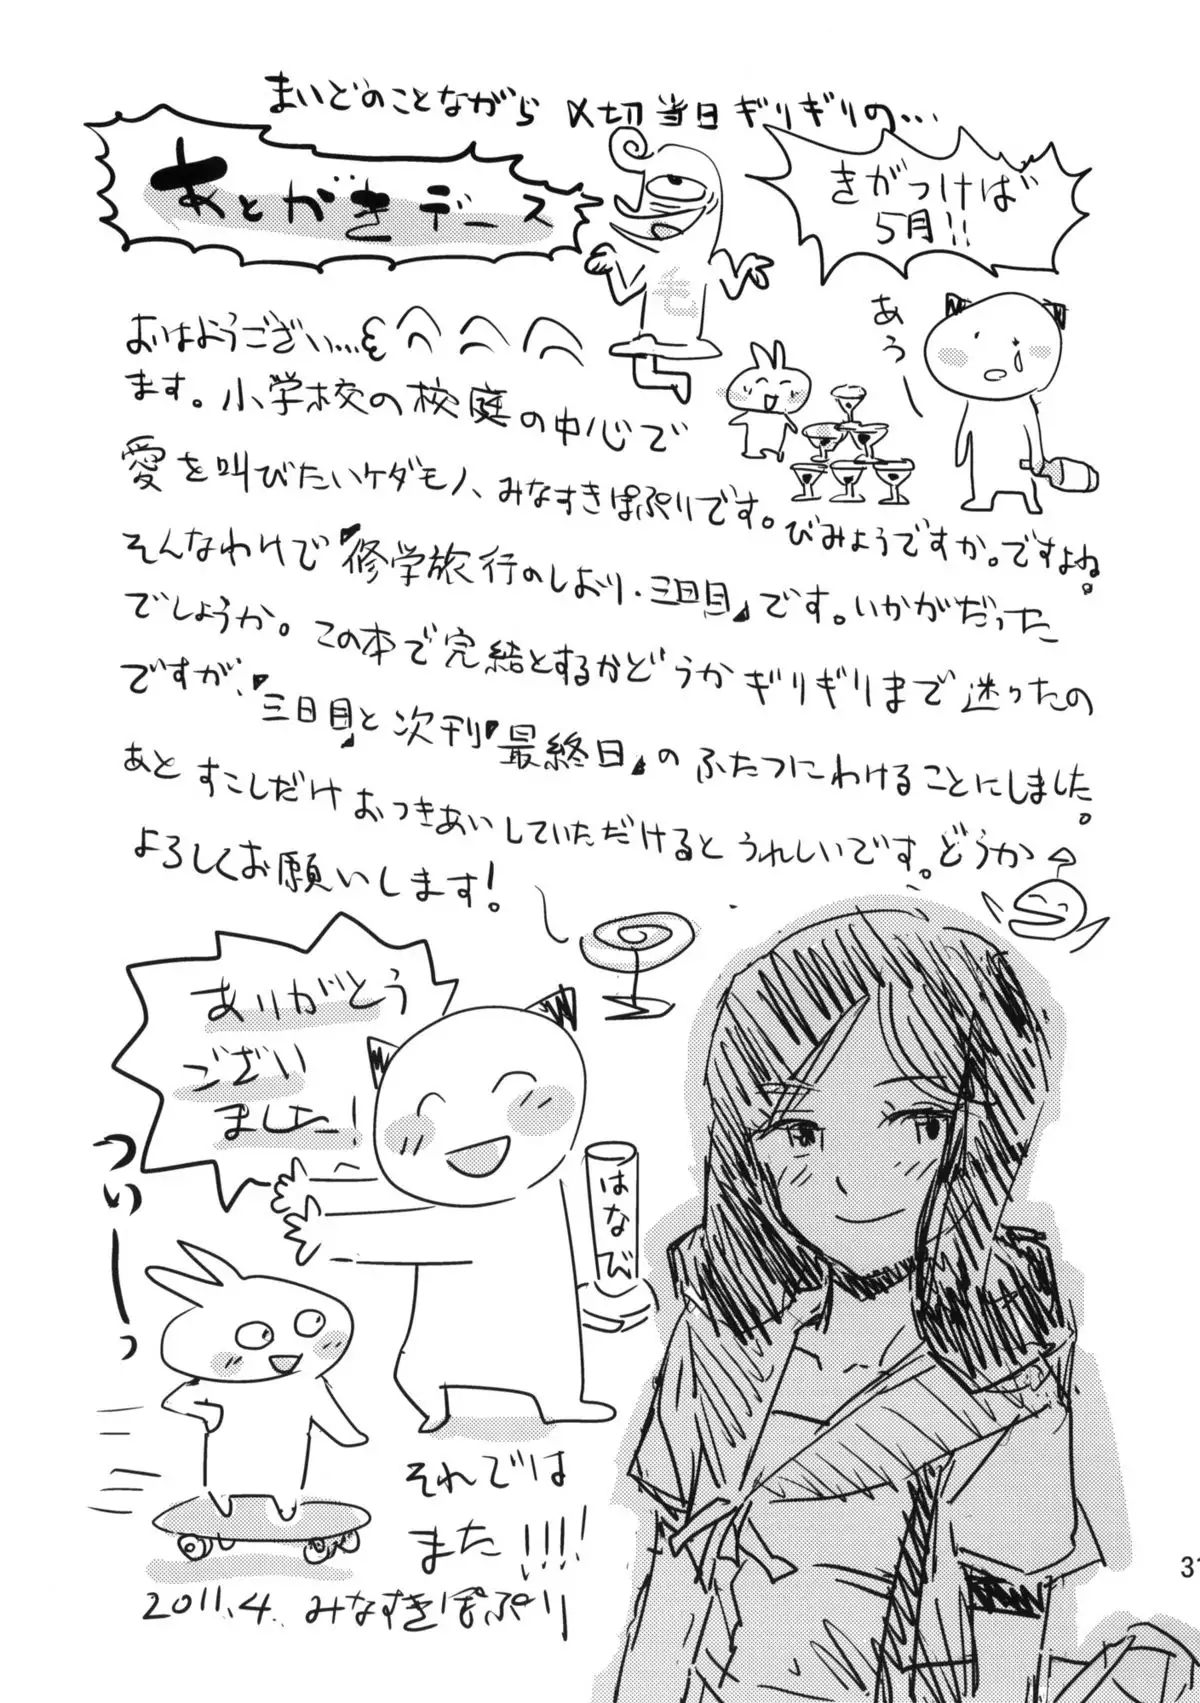 まいどのことながら〆切当日ギリギリの…
あとがきデース
きがつけば
5月!!
あう
毛
おはようござい…
ます。小学校の校庭の中心で
愛を叫びたいケダモノ、みなすきぽぷりです。びみょうですか。ですよね。
そんなわけで『修学旅行のしおり・三日目』です。いかがだった
でしょうか。この本で完結とするかどうかギリギリまで迷ったの
ですが、『三日目』と次刊『最終日』のふたつにわけることにしました。
あとすこしだけおつきあいしていただけるとうれしいです。どうか
よろしくお願いします!
ありがとう
ござい
ました!
はなび
ついーっ
それでは
また!!!!
2011.4. みなすきぽぷり